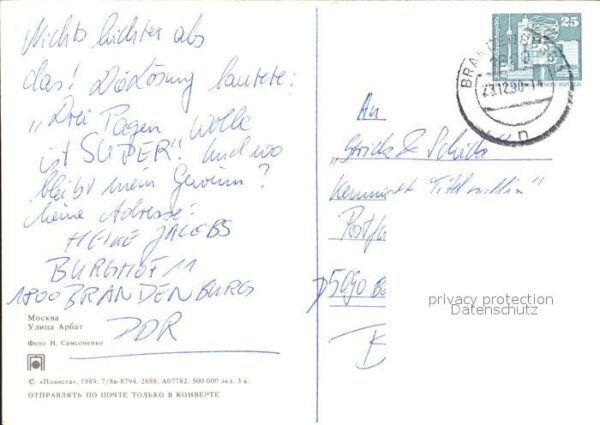 Nichts leichter als
das! Die Lösung lautete:
„Drei Pagen Wolle
ist SUPER". Und wo
bleibt mein Gewinn?
Meine Adresse:
HEIKE JACOBS
BURGHOF 11
1800 BRANDENBURG
DDR
Москва
Улица Арбат
Фото Н. Самсоненко
© «Планета», 1989. 7/8в-8794. 2688. А07782. 500 000 экз. 3 к.
ОТПРАВЛЯТЬ ПО ПОЧТЕ ТОЛЬКО В КОНВЕРТЕ
25
BRANDENBURG
23.12.90-14
n
An
„Strick & Schick
Kennwort
Postfa
5090
privacy protection
Datenschutz